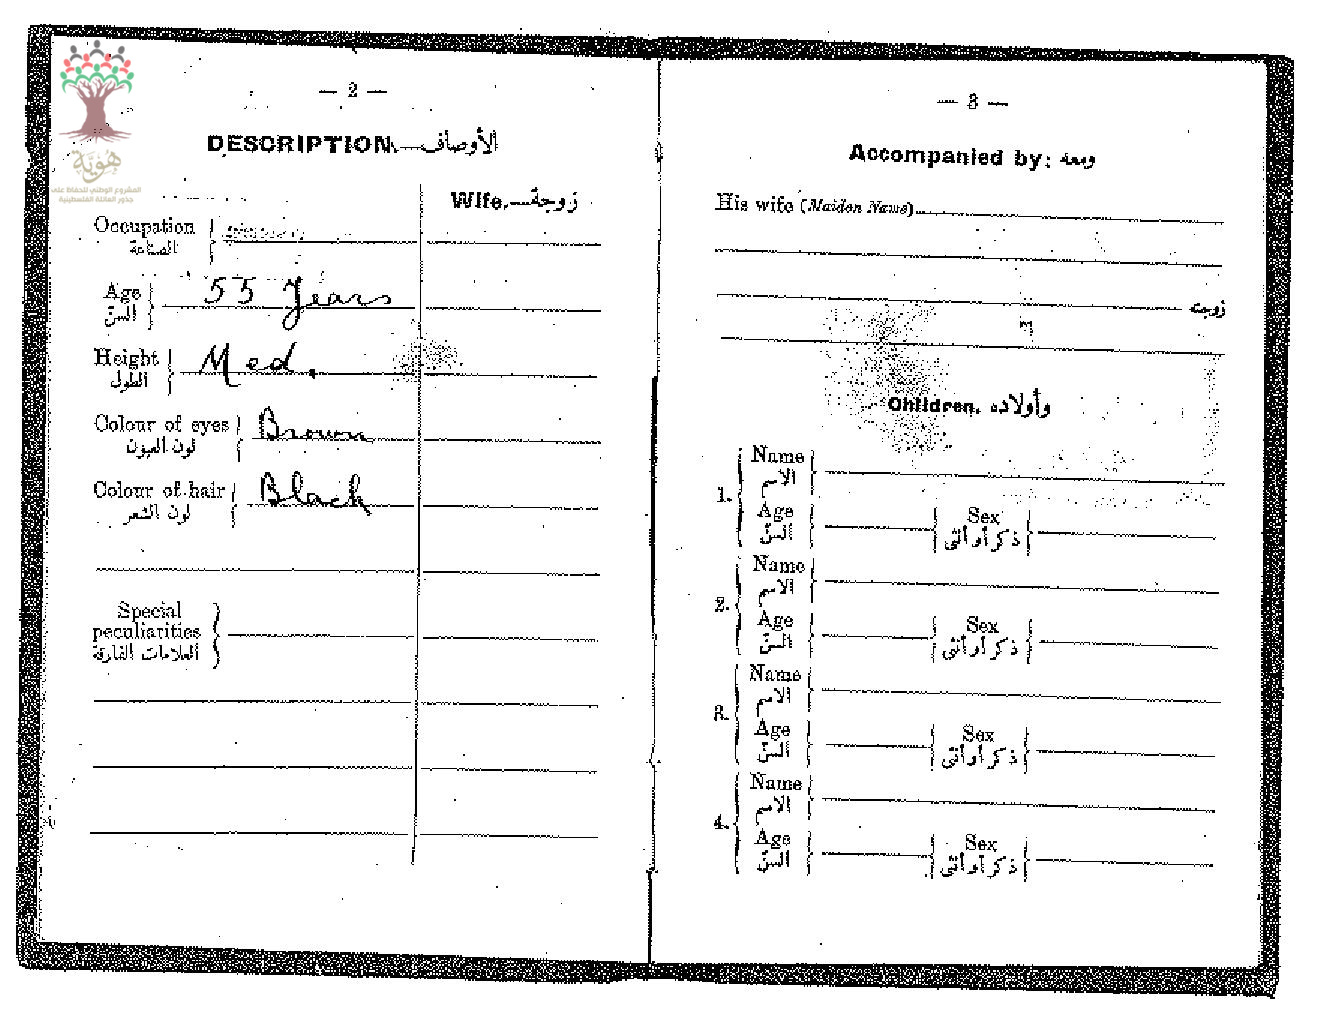 هُويَّة
المشروع الوطني للحفاظ على
جذور العائلة الفلسطينية
— 2 —
DESCRIPTION.—الأوصاف
Wife.—زوجة
Occupation
الصناعة
Age
السنّ
55 Years
Height
الطول
Med.
Colour of eyes
لون العيون
Brown
Colour of hair
لون الشعر
Black
Special
peculiarities
العلامات الفارقة
— 3 —
Accompanied by: ومعه
His wife (Maiden Name)
زوجت
Children. وأولاده
1.
Name
الاسم
Age
السنّ
Sex
ذكر أو أنثى
2.
Name
الاسم
Age
السنّ
Sex
ذكر أو أنثى
3.
Name
الاسم
Age
السنّ
Sex
ذكر أو أنثى
4.
Name
الاسم
Age
السنّ
Sex
ذكر أو أنثى